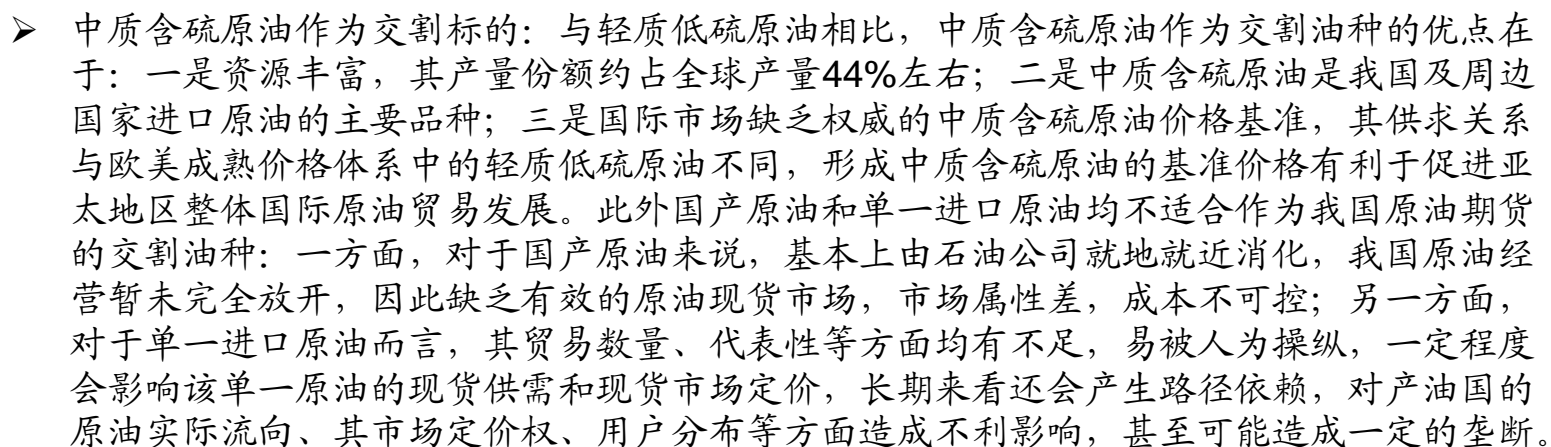 ➢ 中质含硫原油作为交割标的：与轻质低硫原油相比，中质含硫原油作为交割油种的优点在
于：一是资源丰富，其产量份额约占全球产量44%左右；二是中质含硫原油是我国及周边
国家进口原油的主要品种；三是国际市场缺乏权威的中质含硫原油价格基准，其供求关系
与欧美成熟价格体系中的轻质低硫原油不同，形成中质含硫原油的基准价格有利于促进亚
太地区整体国际原油贸易发展。此外国产原油和单一进口原油均不适合作为我国原油期货
的交割油种：一方面，对于国产原油来说，基本上由石油公司就地就近消化，我国原油经
营暂未完全放开，因此缺乏有效的原油现货市场，市场属性差，成本不可控；另一方面，
对于单一进口原油而言，其贸易数量、代表性等方面均有不足，易被人为操纵，一定程度
会影响该单一原油的现货供需和现货市场定价，长期来看还会产生路径依赖，对产油国的
原油实际流向、其市场定价权、用户分布等方面造成不利影响，甚至可能造成一定的垄断。